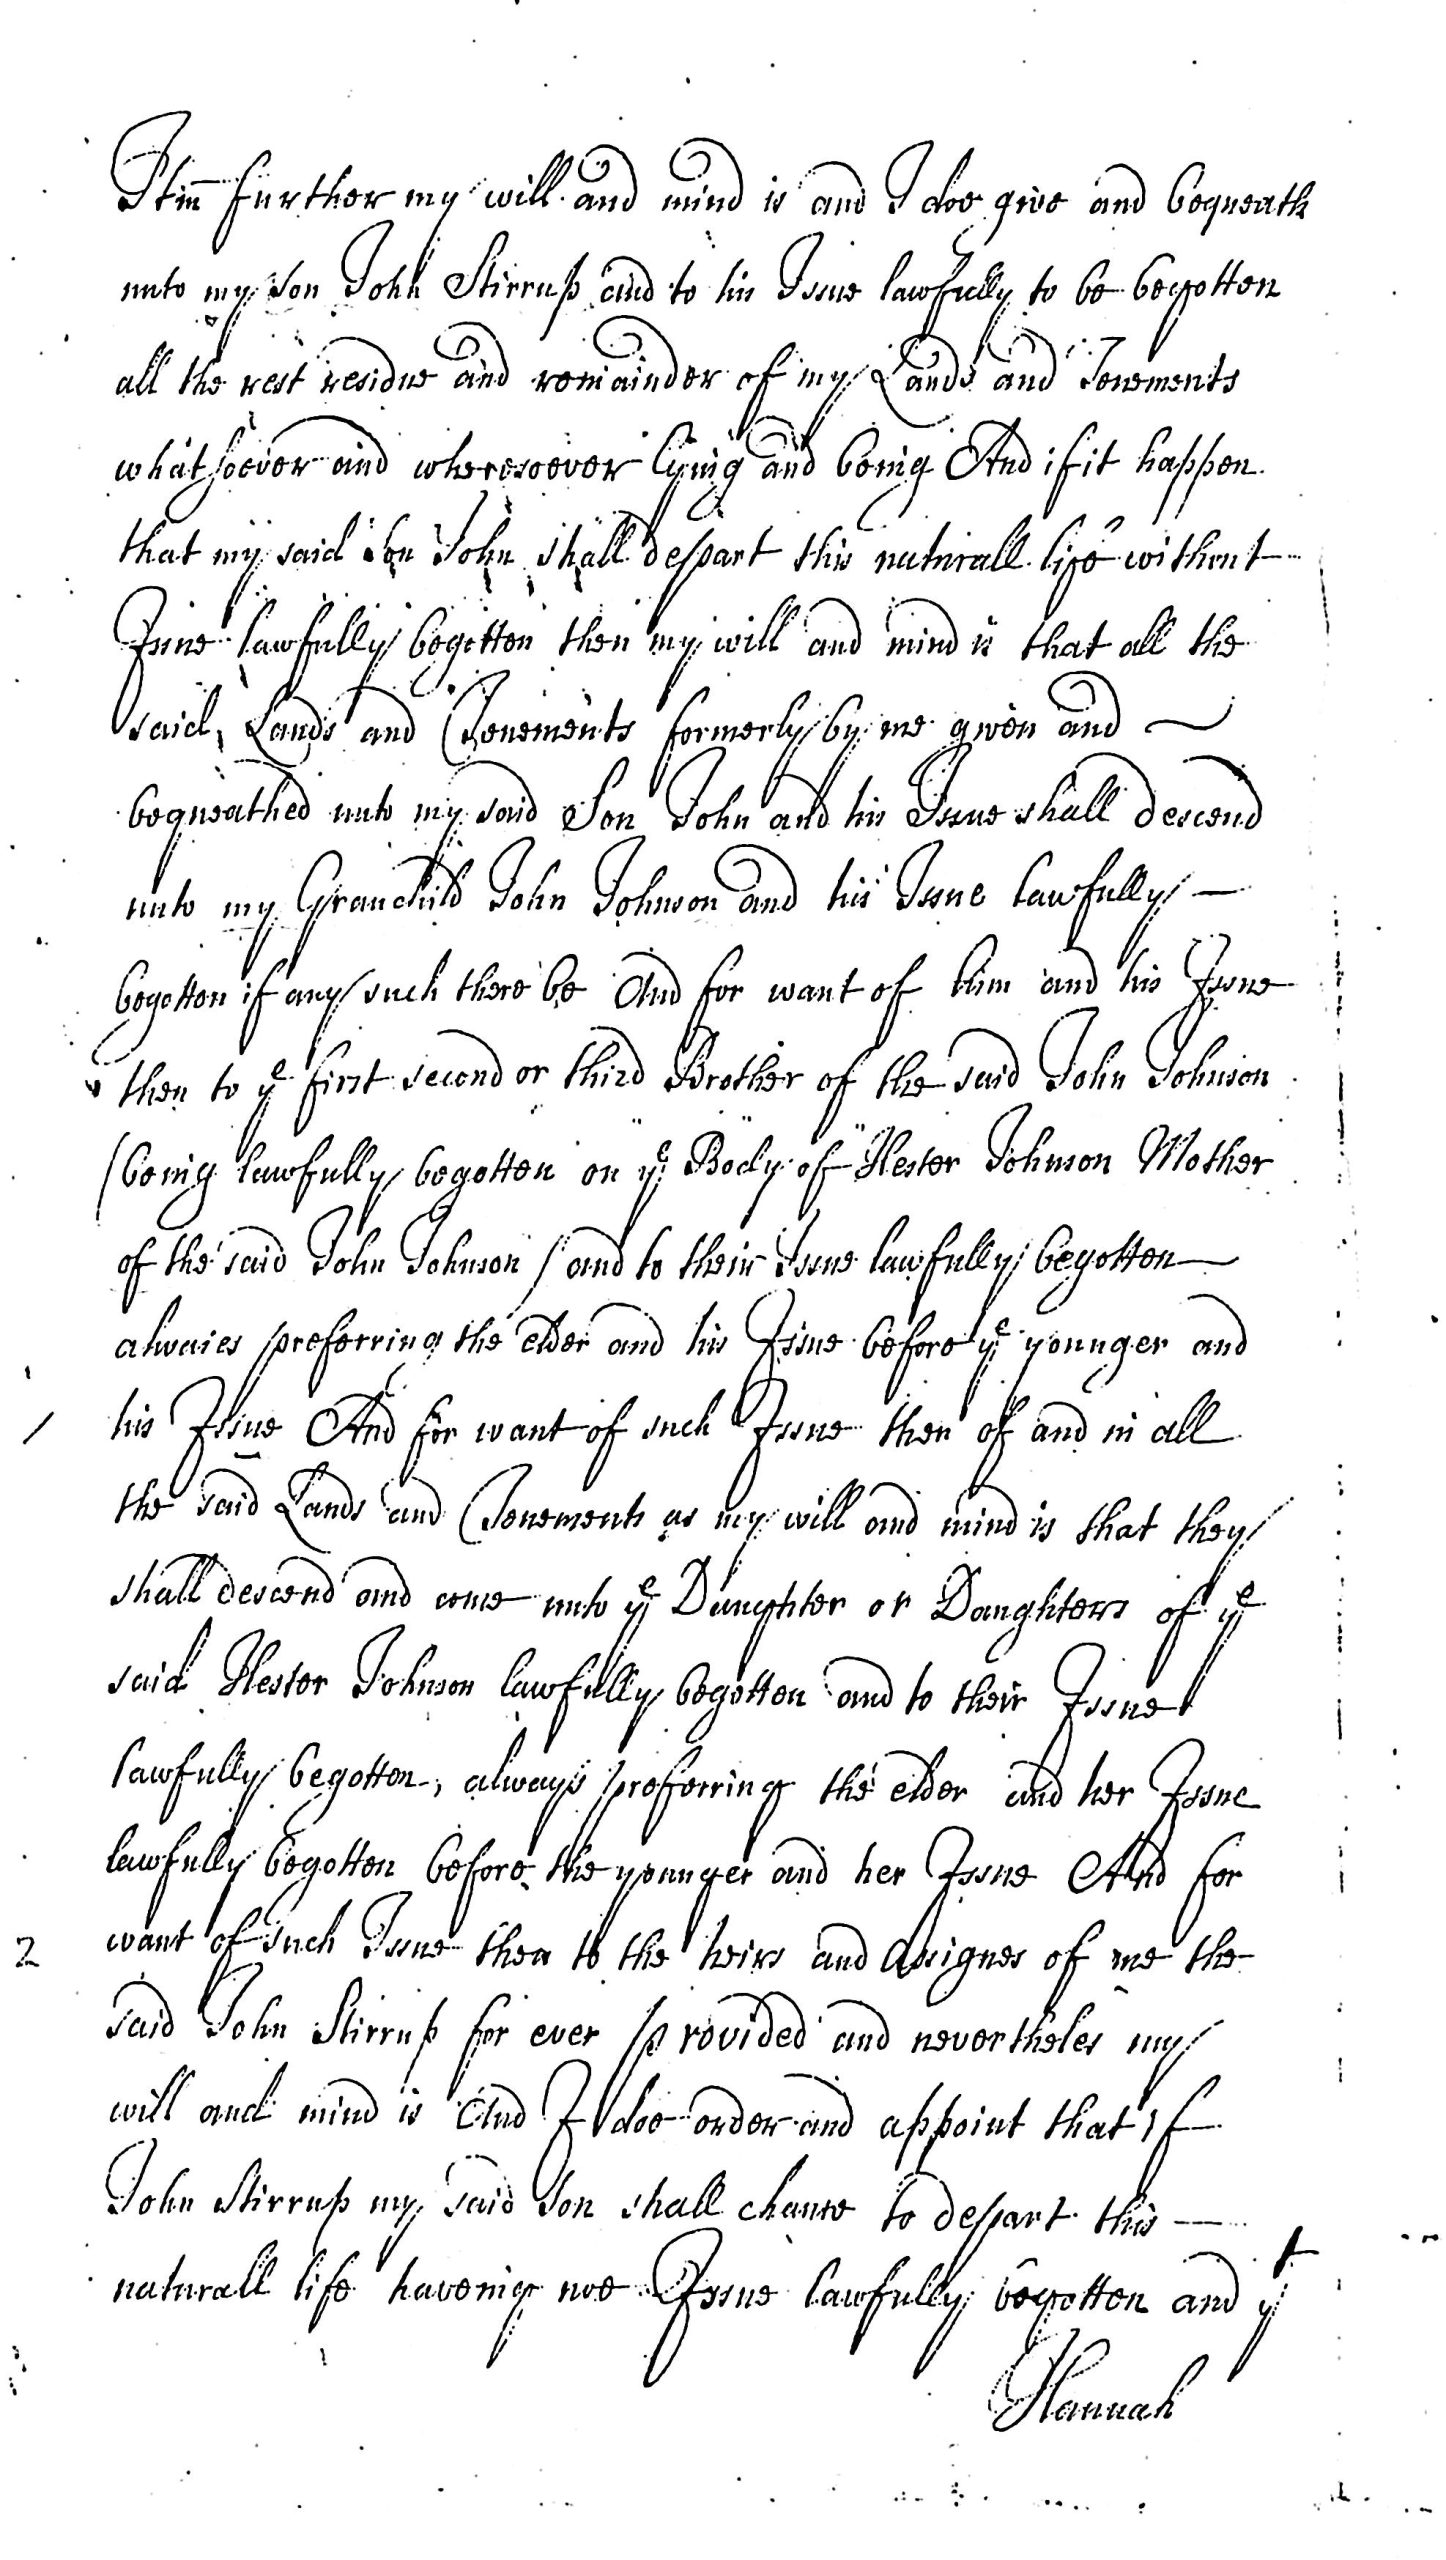 Itm further my will and mind is and I doe give and bequeath
unto my son John Stirrup and to his Issue lawfully to be begotten
all the rest residue and remainder of my Lands and Tenements
whatsoever and wheresoever lying and being And if it happen
that my said Son John shall depart this naturall life without
Issue lawfully begotten then my will and mind is that all the
said Lands and Tenements formerly by me given and
bequeathed unto my said Son John and his Issue shall descend
unto my Granchild John Johnson and his Issue lawfully
begotten if any such there be And for want of him and his Issue
then to ye first second or third Brother of the said John Johnson
(being lawfully begotten on ye Body of Hester Johnson Mother
of the said John Johnson) and to their Issue lawfully begotten
alwaies preferring the elder and his Issue before ye younger and
his Issue And for want of such Issue then of and in all
the said Lands and Tenements as my will and mind is that they
shall descend and come unto ye Daughter or Daughters of ye
said Hester Johnson lawfully begotten and to their Issue
lawfully begotten, always preferring the elder and her Issue
lawfully begotten before the younger and her Issue And for
2 want of such Issue then to the heirs and Assignes of me the
said John Stirrup for ever provided and nevertheles my
will and mind is And I doe order and appoint that if
John Stirrup my said Son shall chance to depart this
naturall life haveing noe Issue lawfully begotten and yt
Hannah